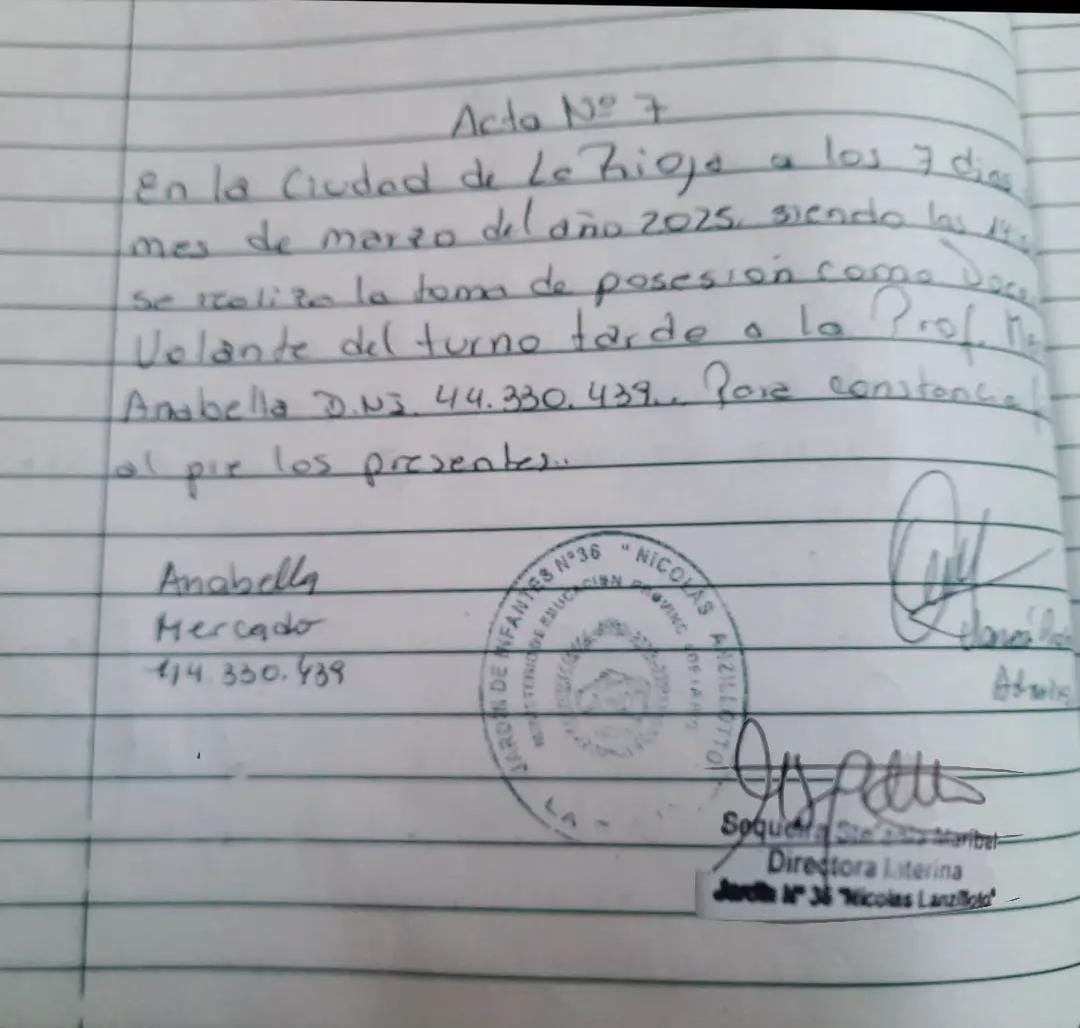 Acta Nº 7
en la Ciudad de La Rioja a los 7 dias
mes de marzo del año 2025, siendo las
se realiza la toma de posesión como
Volante del turno tarde a la Prof.
Anabella D.N.I. 44.330.439.. Para constancia
al pie los presentes..
Anabella
Mercado
44.330.439
JARDIN DE INFANTES Nº36 "NICOLAS ANZILLOTTO
MINISTERIO DE EDUCACION
LA
Directora Interina
Jardin Nº 36 "Nicolas Lanzilloto"